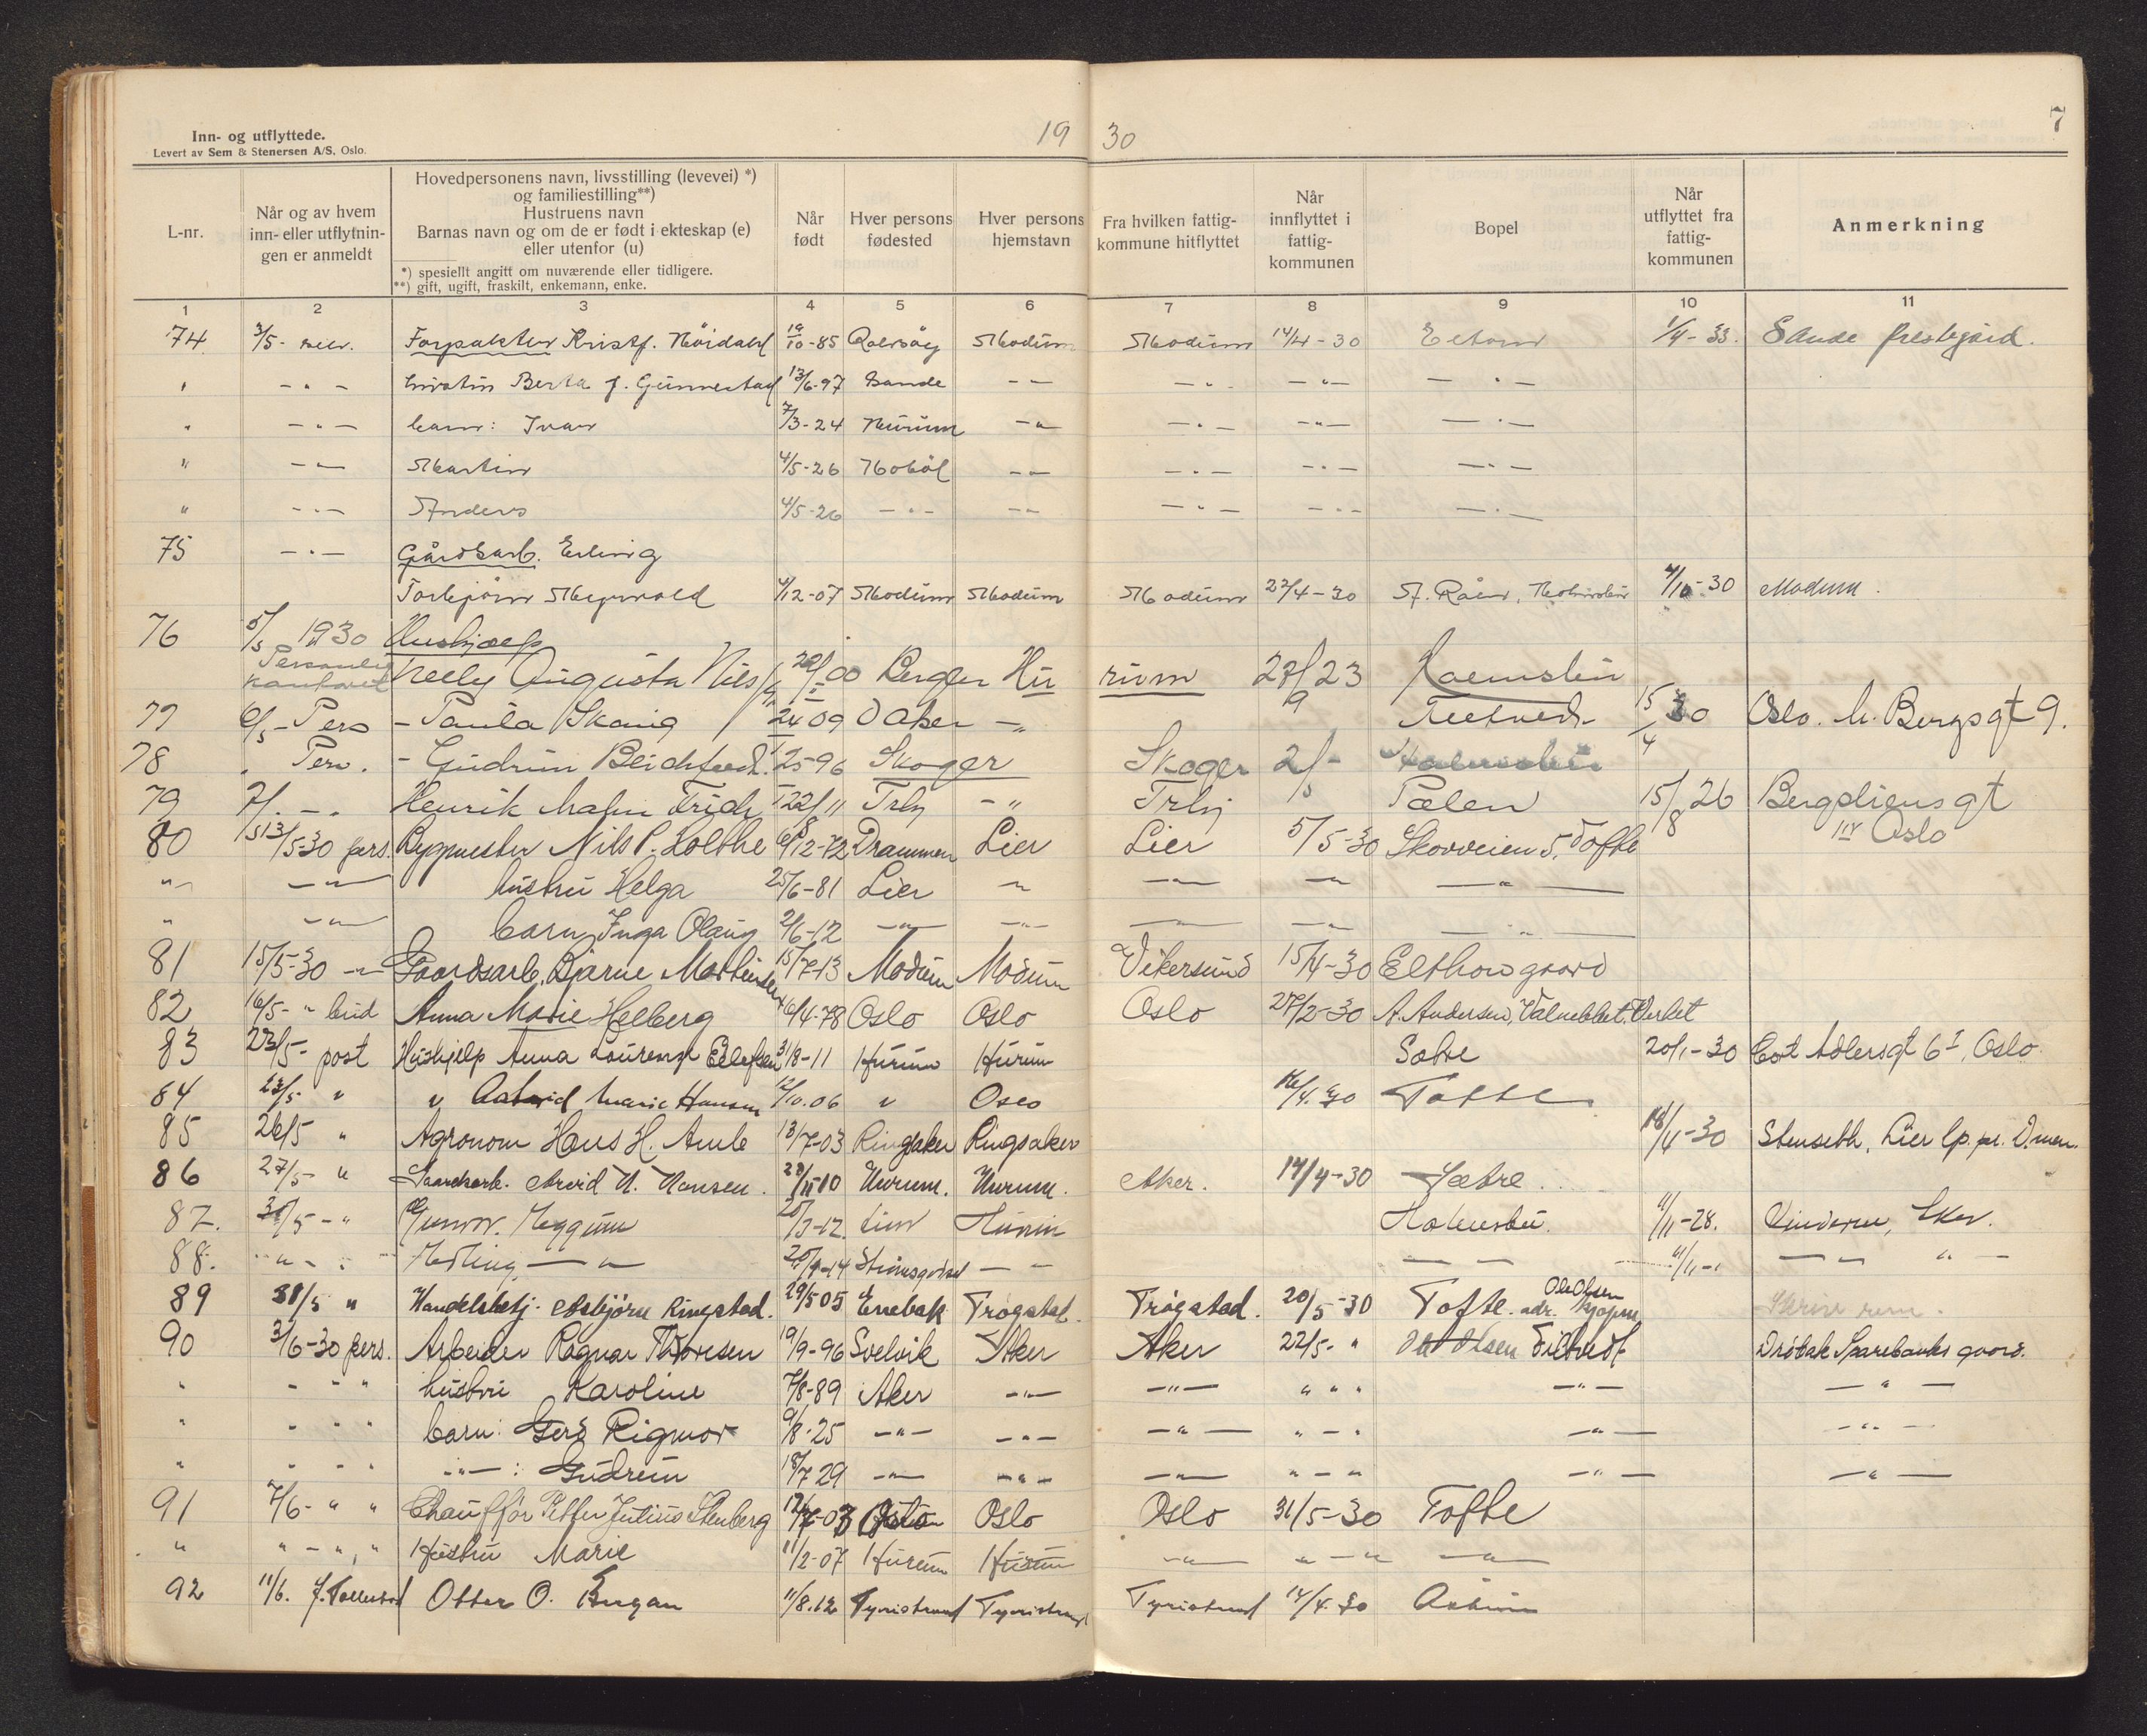 7
Inn- og utflyttede.
Levert av Sem & Stenersen A/S, Oslo.
19 30
L-nr.
Når og av hvem inn- eller utflytnin- gen er anmeldt
Hovedpersonens navn, livsstilling (levevei) *)
og familiestilling**)
Hustruens navn
Barnas navn og om de er født i ekteskap (e)
eller utenfor (u)
*) spesiellt angitt om nuværende eller tidligere.
**) gift, ugift, fraskilt, enkemann, enke.
Når født
Hver persons fødested
Hver persons hjemstavn
Fra hvilken fattig- kommune hitflyttet
Når innflyttet i fattig- kommunen
Bopel
Når utflyttet fra fattig- kommunen
Anmerkning
1 2 3 4 5 6 7 8 9 10 11
74 3/5- Forpakter Kristf. Höidahl 19/10-85 Modum Modum 14/4-30 1/4-33. Sande prestegård.
" -"- Berta f. Gunnestad 13/6-97 Sande -"- -"- -"- -"-
" -"- barn: Ivar 7/3-24 Hurum -"- -"- -"- -"-
" -"- Martin 4/5-26 Hobøl -"- -"- -"- -"-
" -"- Anders 4/5-26 -"- -"- -"- -"- -"-
75 -"- Gårdsarb. Erling
Torbjørn 4/12-07 Modum Modum Modum 22/4-30 4/10-30 Modum.
76 5/5 1930 Hushjælp
Personlig kontoret Nelly Augusta Nils 00 Berger Hurum 27/9 23 Holmsbu
77 6/5 - Pers - Paula Skaug 09 -"- Tretvedt 15/4 30 Oslo. Bergsgt 9.
78 " Pers. - Gudrun 25-96 Skoger Skoger 2/5 - Holmsbu
79 7/. -. Henrik 22/8 11 -" 15/8 26 Bergsliensgt
III Oslo
80 13/5-30 pers. Byggmester Nils P. Holthe 6/12-72 Drammen Lier Lier 5/5-30 Skovveien 5, Tofte
" -"- hustru Helga 25/6-81 Lier " -"- -"- -"-
" -"- barn, Inga Olaug 2/6-12 -"- -"- -"- -"- -"-
81 15/5-30 -"- Gaardsarb. Bjarne Martinsen 15/7-13 Modum Modum Vikersund 15/4-30 Elthongaard
82 16/5- " bud Anna Marie Helberg 6/4-78 Oslo Oslo Oslo 27/2-30 A. Andersen,
83 22/5- post Hushjelp Anna Lourense Ellefsen 31/8-11 Hurum Hurum Sætre 20/1-30 Cort Adlersgt 6 I, Oslo.
84 23/5 " " Astrid Marie Hansen 12/10.06 " Oslo 16/4.30 Tofte
85 26/5 " Agronom Hans H. Amle 13/7-03 Ringsaker Ringsaker 18/4-30 Stenseth, Lier lp. pr. D.men.
86 27/5- " Gaardsarb. Arvid H. Hansen. 28/11-10 Hurum. Hurum. Aker. 14/4-30 Sætre.
87. /5 - " Gunvor. Heggum -12. Hurum Holmsbu. 11/11-28. Vinderen, Aker.
88. -"- Hedling -"- 20/9-14 - - -"- 11/11-" -"- " -
89 31/5 " Handelsbetj. Asbjørn Ringstad. 29/5 05 Enebak Trøgstad. Trøgstad. 20/5-30 Tofte. adr. Ole Olsen
90 3/6-30 pers. Arbeider Ragnar Thoresen 19/9-96 Svelvik Aker Aker 22/5- " Olsen Filtvedt Drøbak Sparebanks gaard.
" - " " hustru Karoline 7/8-89 Aker -"- -"- " " " -"- -"-
" - " " barn: Gerd Rigmor 9/8-25 -"- -"- -"- " - " -"- -"-
" - - " -"-: Gudrun 18/7 29 -"- -"- -"- " - " -"- -"-
91 7/6- " " Chauffør Petter Julius Stenberg 12/7-03 Oslo Oslo 31/5-30 Tofte
" " - " " Hustru Marie 11/2-07 Hurum Hurum -"- " - " -"-
92 11/6. J. Tollefsrud Otter O. Bergan 11/8.12 Tyristrand Tyristrand Tyristrand 14/4.30